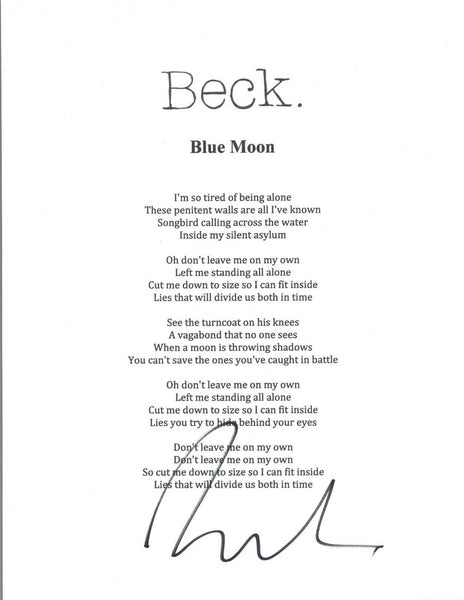 Beck.
Blue Moon
I'm so tired of being alone
These penitent walls are all I've known
Songbird calling across the water
Inside my silent asylum
Oh don't leave me on my own
Left me standing all alone
Cut me down to size so I can fit inside
Lies that will divide us both in time
See the turncoat on his knees
A vagabond that no one sees
When a moon is throwing shadows
You can't save the ones you've caught in battle
Oh don't leave me on my own
Left me standing all alone
Cut me down to size so I can fit inside
Lies you try to hide behind your eyes
Don't leave me on my own
Don't leave me on my own
So cut me down to size so I can fit inside
Lies that will divide us both in time